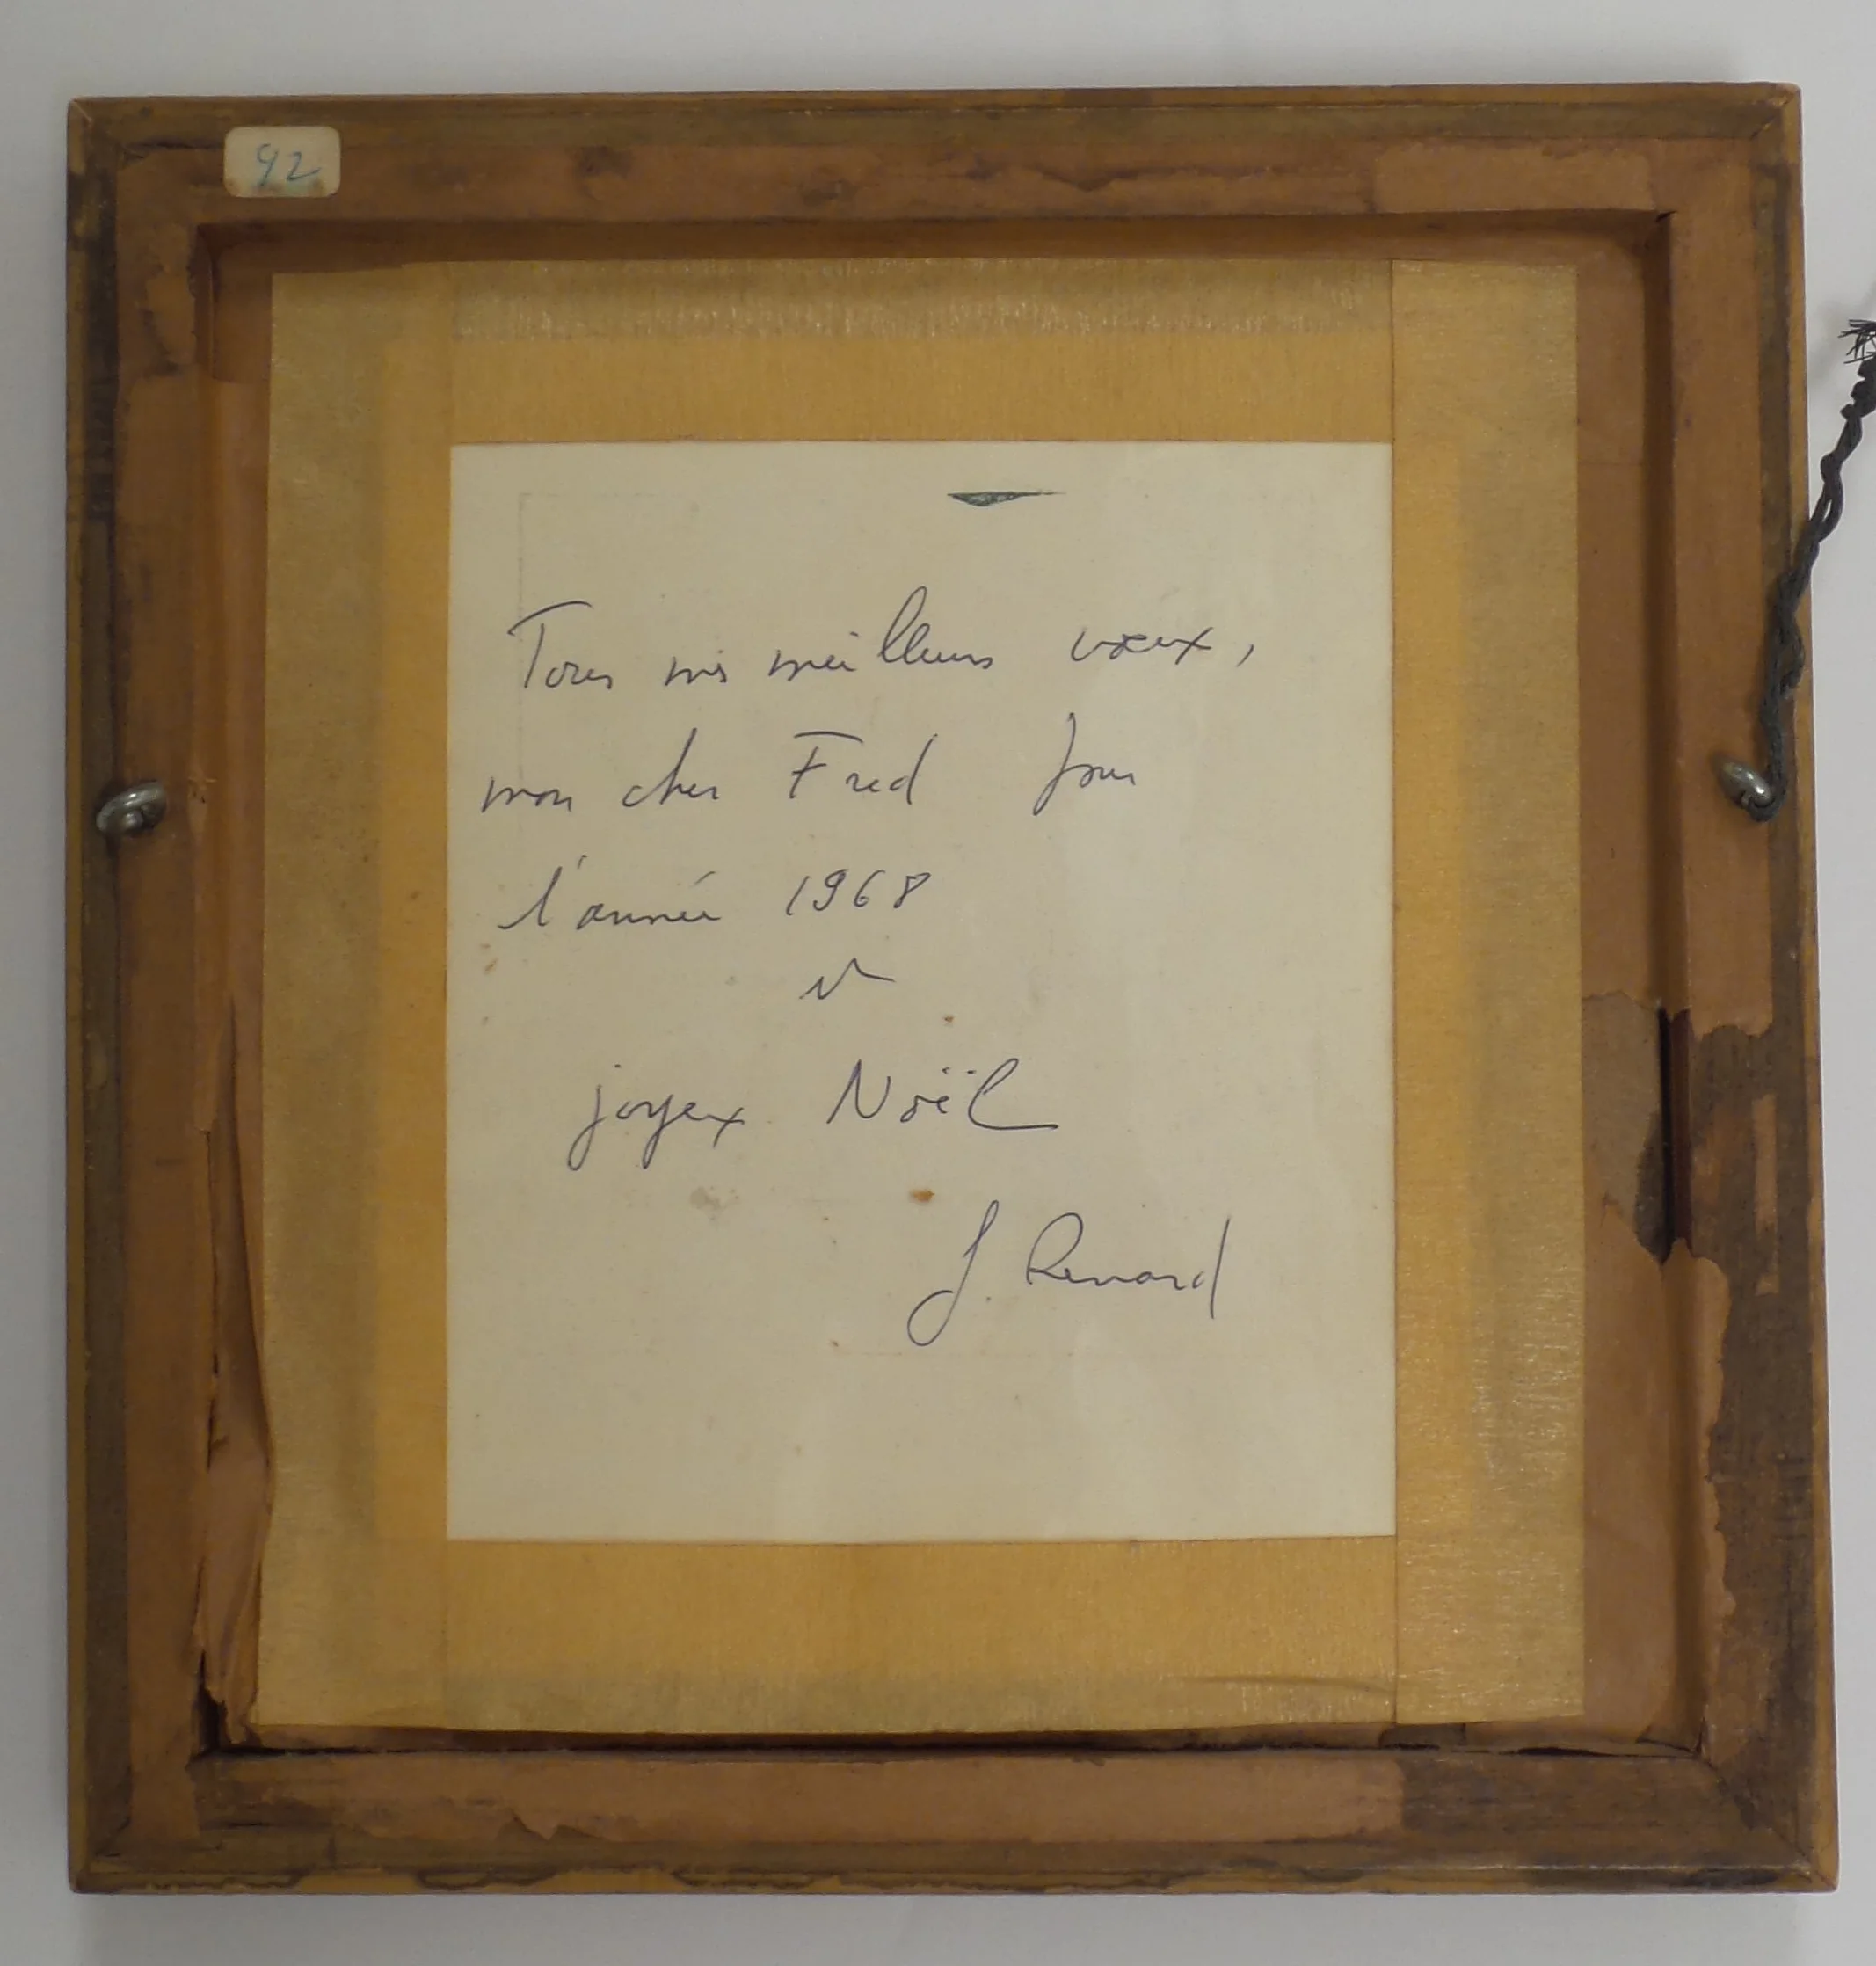 92
Tous mes meilleurs vœux,
mon cher Fred pour
l'année 1968
et
joyeux Noël
J. Renard